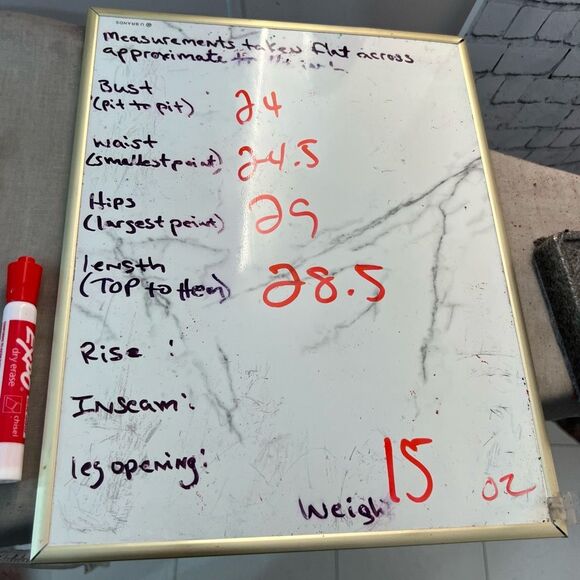 U BRANDS
measurements taken flat across
approximate
Bust
(pit to pit) 24
waist
(smallest point) 24.5
Hips
(largest point) 29
length
(TOP to Hem) 28.5
Rise :
Inseam :
leg opening :
15 oz
Weigh
EXPO
dry erase
chisel